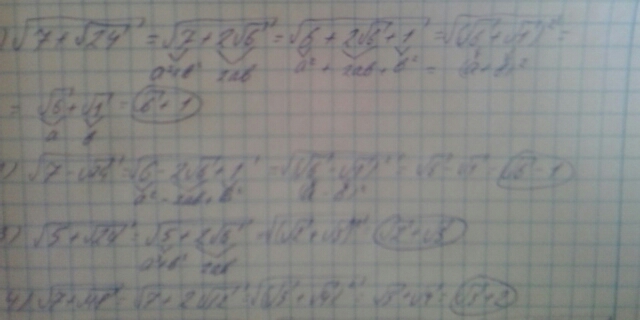 √7+√24 = √7+2√6 = √6+2√6+1 = √(√6+√1)² =
a²+b² 2ab a² + 2ab + b² = (a+b)²
= √6+√1 = √6+1
a b
√7-√24 = √6-2√6+1 = √(√6-√1)² = √6-√1 = √6-1
a²-2ab+b² (a-b)²
3) √5+√24 = √5+2√6 = √(√2+√3)² = √2+√3
a²+b² 2ab
4) √7+√48 = √7+2√12 = √(√3+√4)² = √3+√4 = √3+2